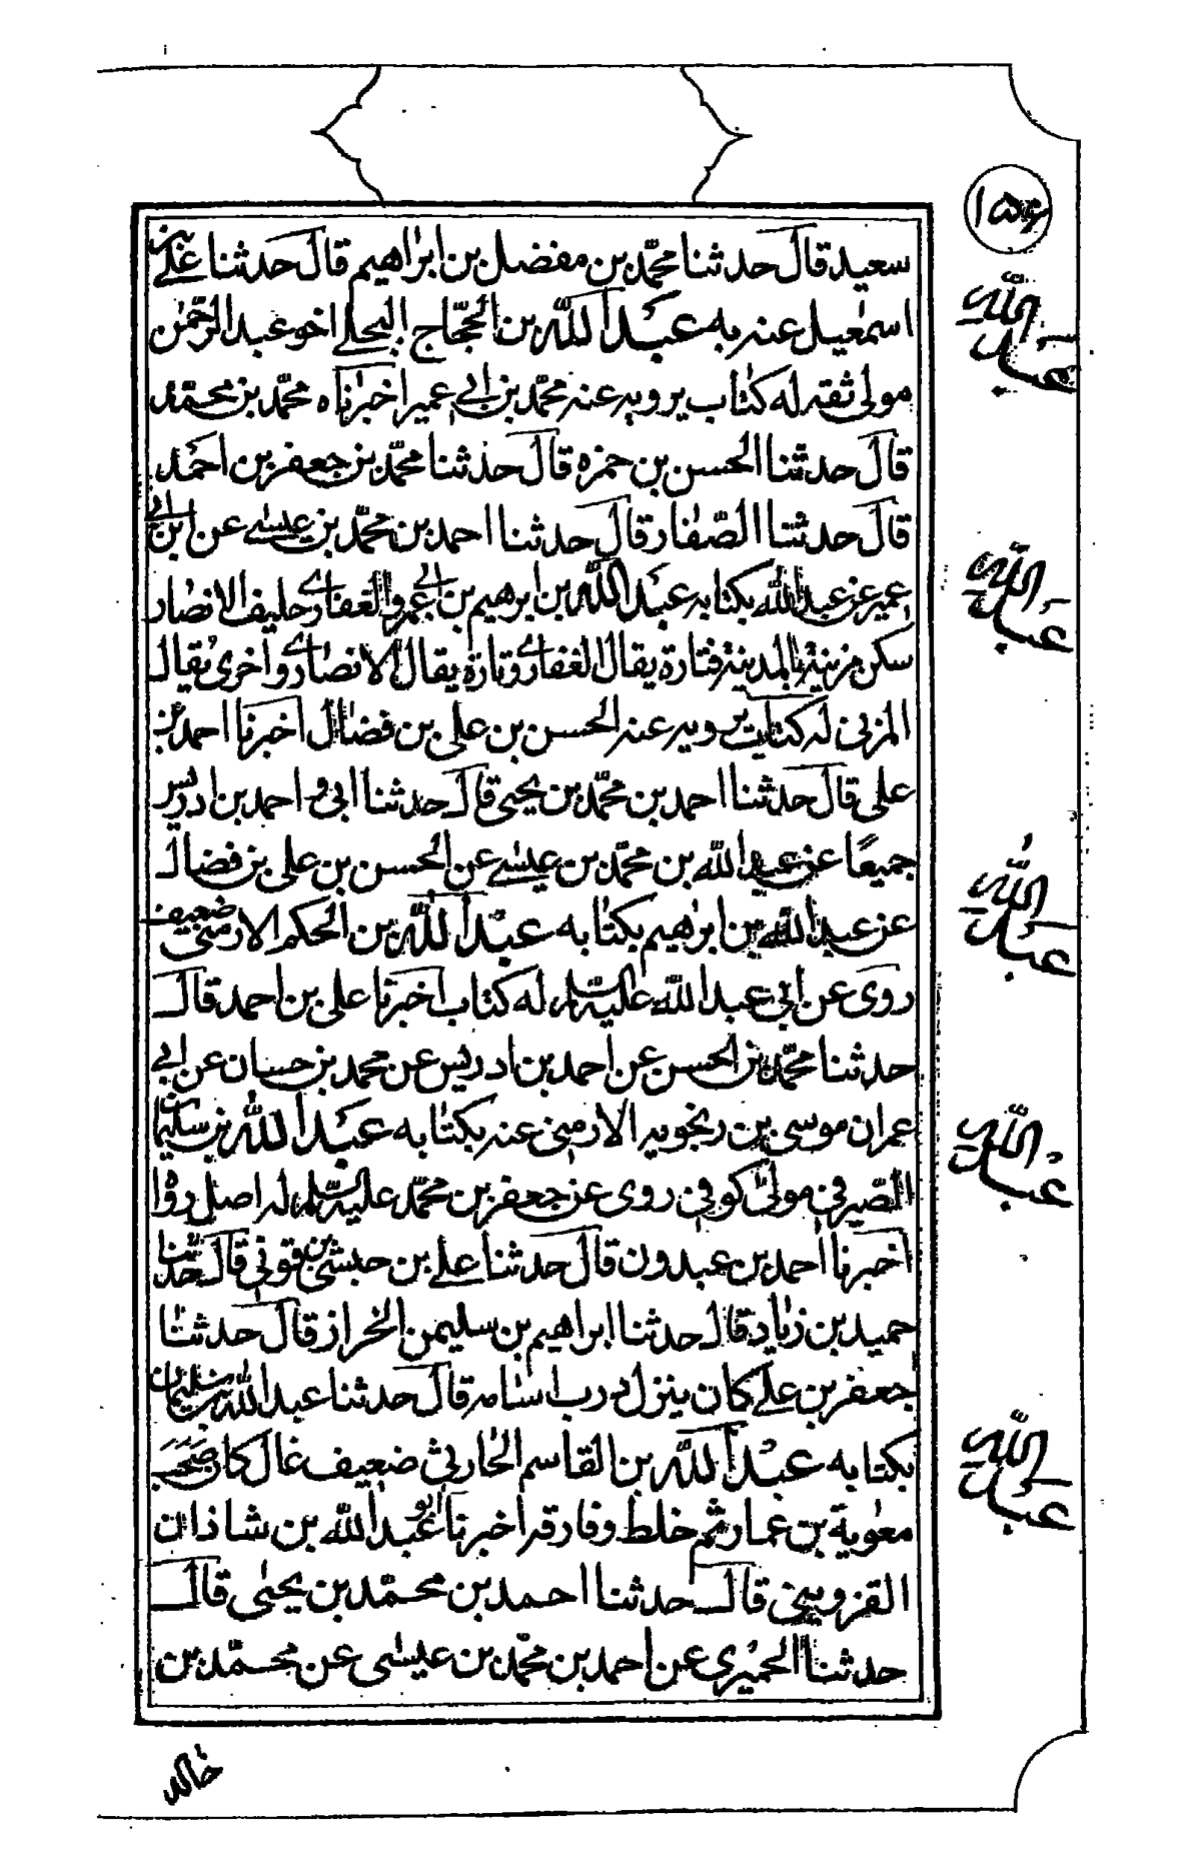 ١٥٦
سعيد قال حدثنا محمّد بن مفضل بن ابراهيم قال حدثنا علے بن
اسمٰعيل عنه به عبد الله بن الحجّاج البجلے اخو عبد الرّحمٰن
مولى ثقه له كتاب يرويه عنه محمّد بن ابي عمير اخبرناه محمّد بن محمّد
قال حدثنا الحسن بن حمزه قال حدثنا محمّد بن جعفر بن احمد
قال حدثنا الصّفار قال حدثنا احمد بن محمّد بن عيسے عن ابن ابي
عمير عن عبد الله بكتابه عبد الله بن ابرهيم بن ابي عمرو الغفاري حليف الانصار
سكن مزينة بالمدينة فتارة يقال الغفاري وتارة يقال الانصاري واخرى يقال
المزني له كتاب يرويه عنه الحسن بن علي بن فضال اخبرنا احمد بن
علي قال حدثنا احمد بن محمّد بن يحيى قال حدثنا ابي و احمد بن ادريس
جميعًا عن عبد الله بن محمّد بن عيسے عن الحسن بن علي بن فضال
عن عبد الله بن ابرٰهيم بكتابه عبد الله بن الحكم الارمني ضعيف
روى عن ابي عبد الله عليه السلم له كتاب اخبرنا علي بن احمد قال
حدثنا محمّد بن الحسن عن احمد بن ادريس عن محمد بن حسان عن ابي
عمران موسى بن رنجويه الارمني عنه بكتابه عبد الله بن سليمان
الصّيرفي مولى كوفي روى عن جعفر بن محمّد عليه السلم له اصل رواه
اخبرنا احمد بن عبدون قال حدثنا علے بن حبشي بن قوني قال حدّثنا
حميد بن زياد قال حدثنا ابراهيم بن سليمن الخراز قال حدثنا
جعفر بن علے كان ينزل درب اسامه قال حدثنا عبد الله بن سليمان
بكتابه عبد الله بن القاسم الحارثي ضعيف غال كان صحب
معٰوية بن عمار ثم خلط وفارقه اخبرنا ابو عبد الله بن شاذان
القزويني قال حدثنا احمد بن محمّد بن يحيى قال
حدثنا الحميري عن احمد بن محمّد بن عيسٰى عن محمّد بن
عبد الله
عبد الله
عبد الله
عبد الله
عبد الله
خالد